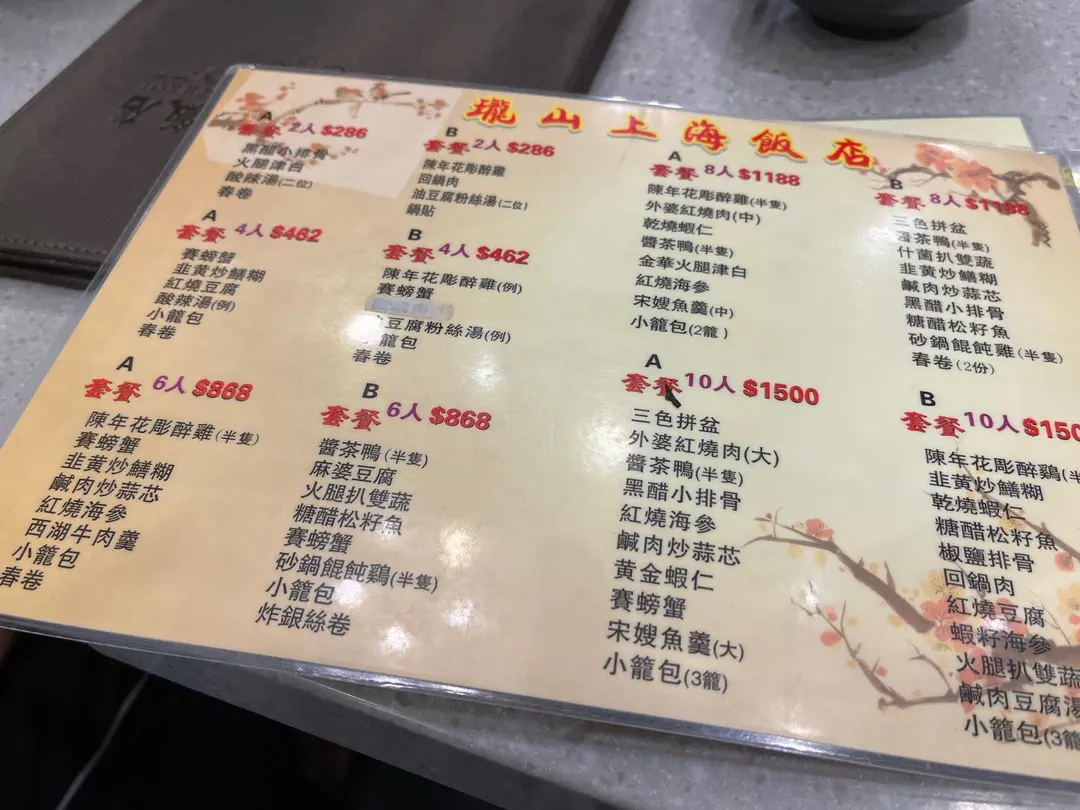 瓏山上海飯店
飯店
A
套餐 2人 $286
黑醋小排骨
火腿津白
酸辣湯(二位)
春卷
B
套餐 2人 $286
陳年花彫醉雞
回鍋肉
油豆腐粉絲湯(二位)
鍋貼
A
套餐 4人 $462
賽螃蟹
韭黄炒鱔糊
紅燒豆腐
酸辣湯(例)
小籠包
春卷
B
套餐 4人 $462
陳年花彫醉雞(例)
賽螃蟹
豆腐粉絲湯(例)
籠包
春卷
A
套餐 6人 $868
陳年花彫醉雞(半隻)
賽螃蟹
韭黄炒鱔糊
鹹肉炒蒜芯
紅燒海參
西湖牛肉羹
小籠包
春卷
B
套餐 6人 $868
醬茶鴨(半隻)
麻婆豆腐
火腿扒雙蔬
糖醋松籽魚
賽螃蟹
砂鍋餛飩鷄(半隻)
小籠包
炸銀絲卷
A
套餐 8人 $1188
陳年花彫醉雞(半隻)
外婆紅燒肉(中)
乾燒蝦仁
醬茶鴨(半隻)
金華火腿津白
紅燒海參
宋嫂魚羹(中)
小籠包(2籠)
B
套餐 8人 $1188
三色拼盆
醬茶鴨(半隻)
什菌扒雙蔬
韭黄炒鱔糊
鹹肉炒蒜芯
黑醋小排骨
糖醋松籽魚
砂鍋餛飩雞(半隻)
春卷(2份)
A
套餐 10人 $1500
三色拼盆
外婆紅燒肉(大)
醬茶鴨(半隻)
黑醋小排骨
紅燒海參
鹹肉炒蒜芯
黄金蝦仁
賽螃蟹
宋嫂魚羹(大)
小籠包(3籠)
B
套餐 10人 $150
陳年花彫醉鷄(半
韭黄炒鱔糊
乾燒蝦仁
糖醋松籽魚
椒鹽排骨
回鍋肉
紅燒豆腐
蝦籽海參
火腿扒雙蔬
鹹肉豆腐湯
小籠包(3籠